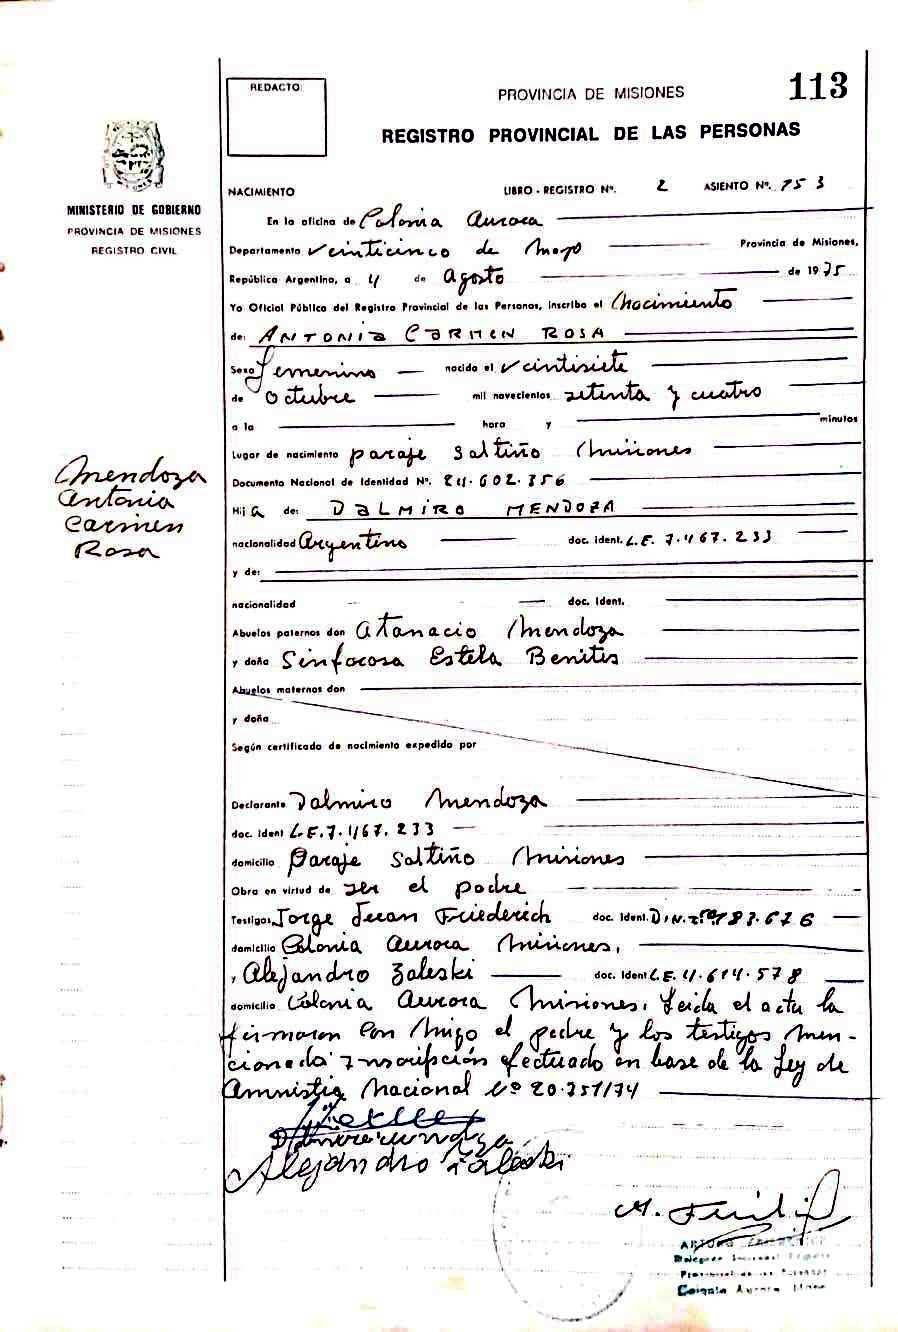 113
REDACTO:
PROVINCIA DE MISIONES
REGISTRO PROVINCIAL DE LAS PERSONAS
MINISTERIO DE GOBIERNO
PROVINCIA DE MISIONES
REGISTRO CIVIL
NACIMIENTO LIBRO - REGISTRO Nº. 2 ASIENTO Nº. 753
En la oficina de Colonia Aurora
Departamento Veinticinco de Mayo Provincia de Misiones,
República Argentina, a 4 de Agosto de 1975
Yo Oficial Público del Registro Provincial de las Personas, inscribo el Nacimiento
de: ANTONIA CARMEN ROSA
Sexo Femenino nacido el veintisiete
de Octubre mil novecientos setenta y cuatro
a la hora y minutos
Lugar de nacimiento paraje Saltiño Misiones
Mendoza
Antonia
Carmen
Rosa
Documento Nacional de Identidad Nº. 24.602.356
Hija de: DALMIRO MENDOZA
nacionalidad Argentino doc. ident. L.E. 7.467.233
y de:
nacionalidad doc. ident.
Abuelos paternos don Atanacio Mendoza
y doña Sinforosa Estela Benites
Abuelos maternos don
y doña
Según certificado de nacimiento expedido por
Declarante Dalmiro Mendoza
doc. ident L.E. 7.467.233
domicilio Paraje Saltiño Misiones
Obra en virtud de ser el padre
Testigos Jorge Juan Friederich doc. ident.
domicilio Colonia Aurora Misiones,
, Alejandro Zaleski doc. ident L.E. 4.614.578
domicilio Colonia Aurora Misiones. Leida el acta la
firmaron con migo el padre y los testigos men-
cionado inscripción efectuado en base de la Ley de
Amnistia Nacional Nº 20.751/74
Alejandro Zaleski
ARTURO
Colonia Aurora